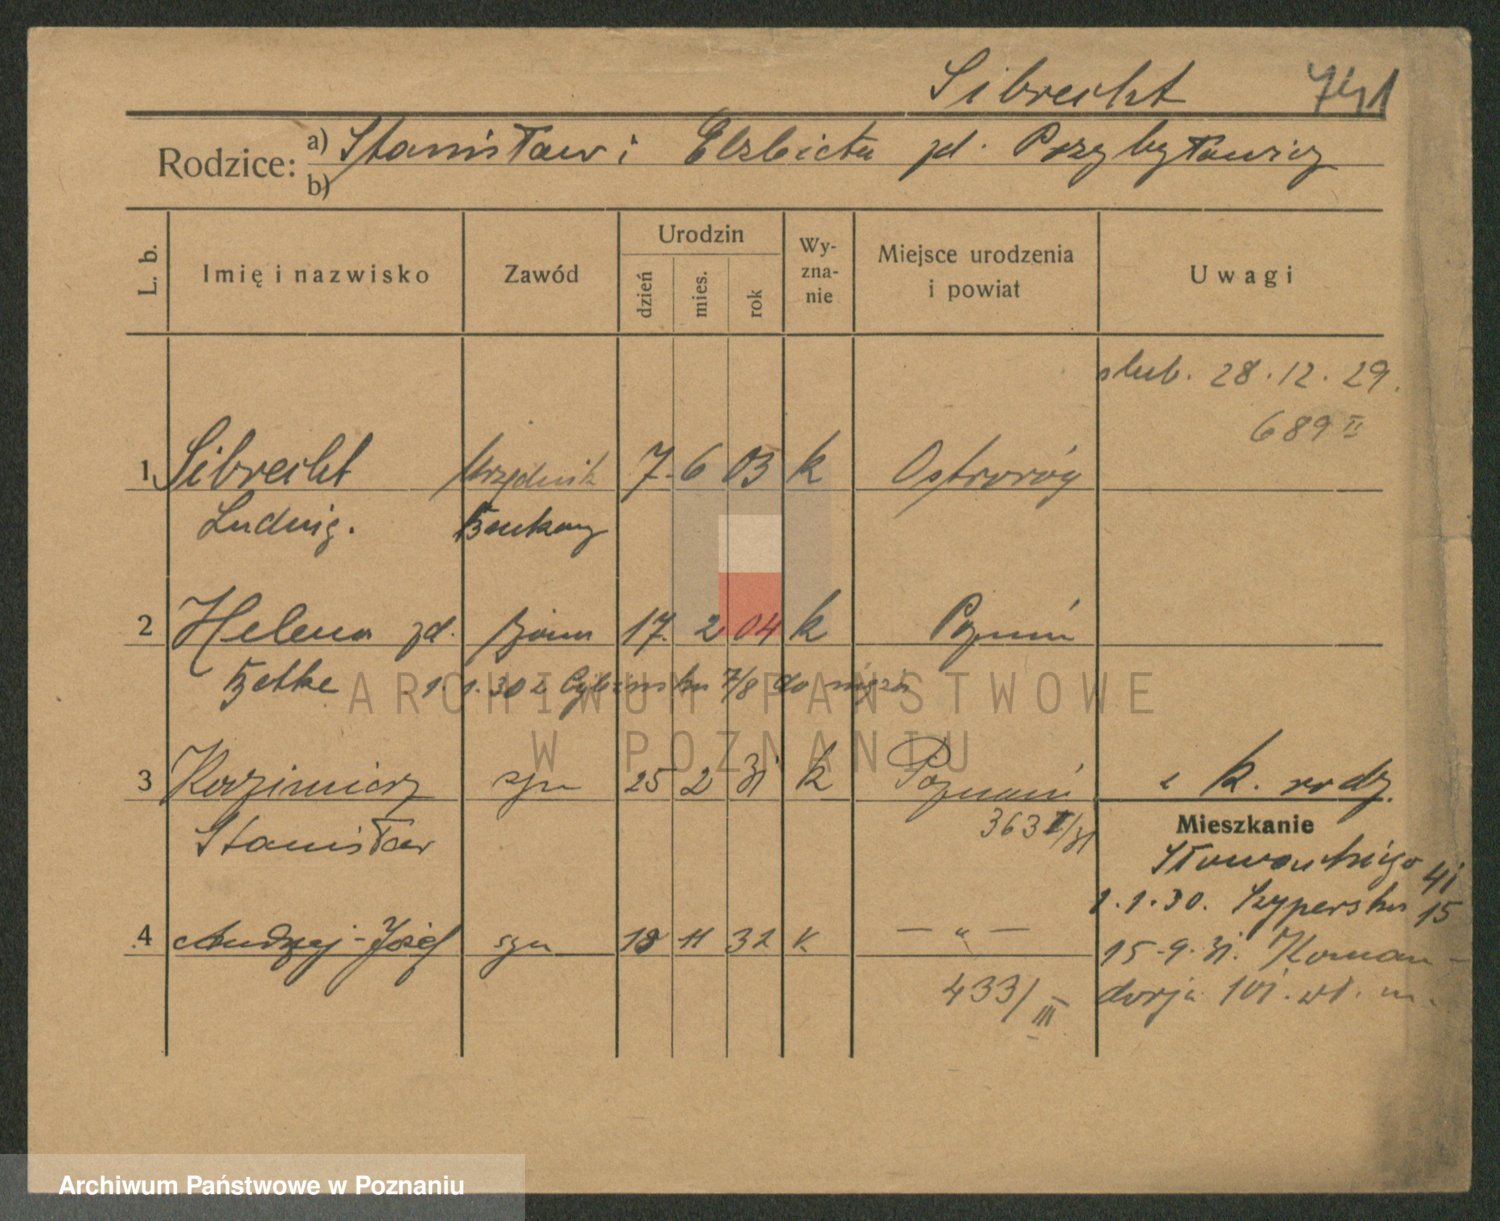 Sibrecht 741
Rodzice: a) Stanisław i Elzbieta zd. Przybyłowicz
b)
L. b. Imię i nazwisko Zawód Urodzin dzień mies. rok Wy-zna-nie Miejsce urodzenia i powiat Uwagi
slub. 28.12.29.
689 II
1 Sibrecht Urzędnik 7. 6 03 k Ostroróg
Ludwig. Bankowy
2 Helena zd. żona 17. 2 04 k Poznań
Betke 1.1.30 z Cybińska 7/8 do męża
3 Kazimierz syn 25 2 31 k Poznań z k. rodz.
363 I/31 Mieszkanie
Stanisław Słowackiego 41
1.1.30. Szyperska 15
4 Andrzej-Józef syn 18 11 32 k. — " — 15.9.31. Koman-
433/III dorja 101. wł. m.
ARCHIWUM PAŃSTWOWE
W POZNANIU
Archiwum Państwowe w Poznaniu